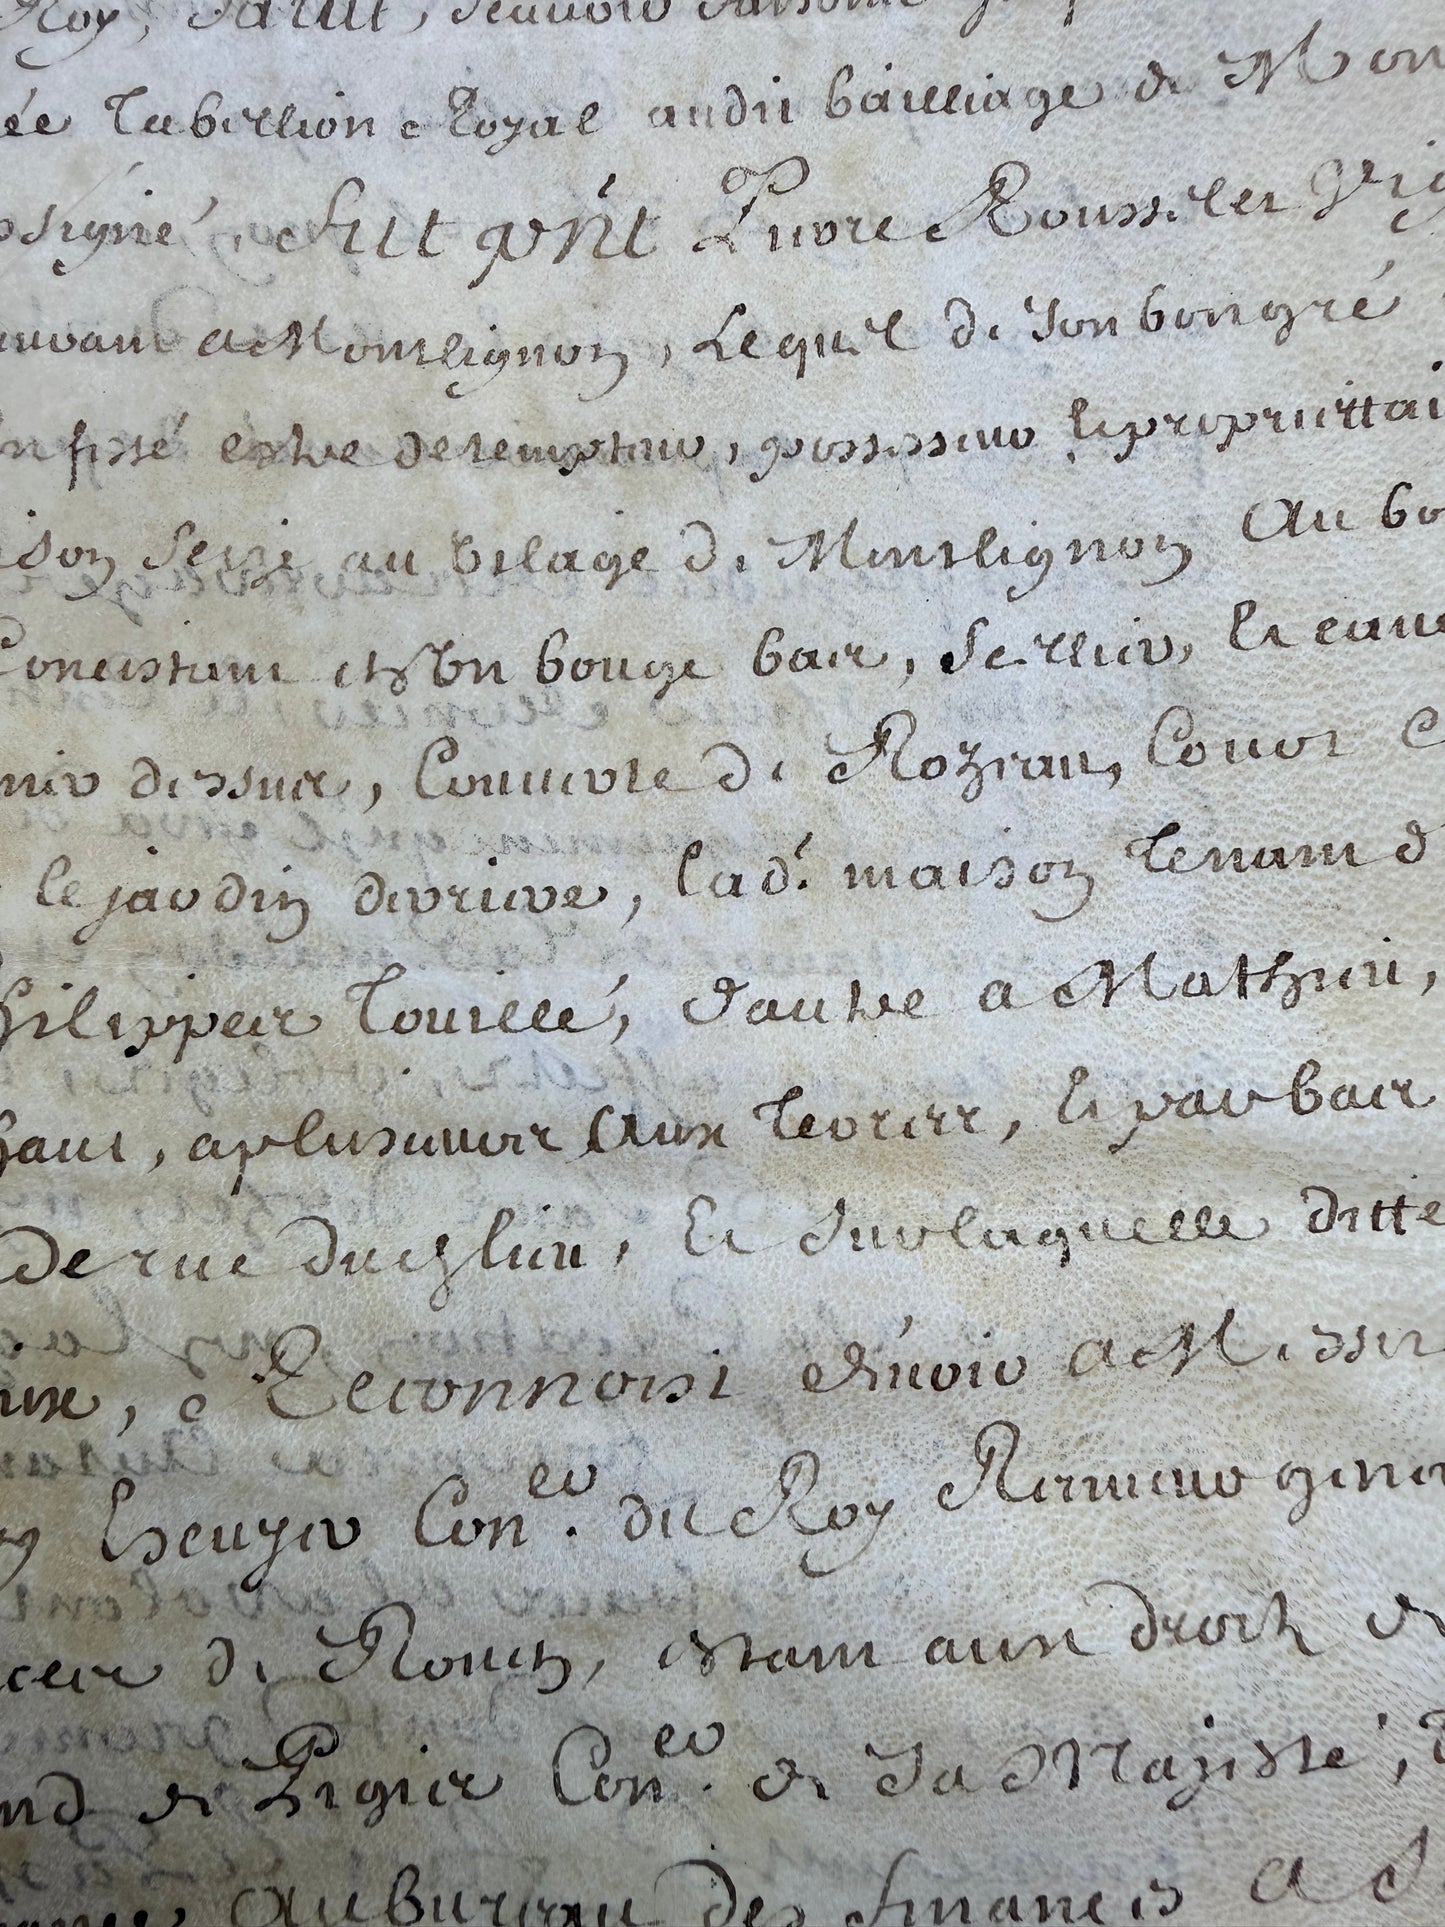 Roy, Salut, scavoir faisons
Tabellion Royal audit bailliage de Mon
signé, fut pñt Pierre Rousselet Vig
demeurant a Montlignon, Lequel de son bon gré
confessé estre detempteur, possesseur & propriettai
maison seize au vilage de Montlignon Au bo
Consistant en un bouge bas, sellier, &
grenier dessus, Couverte de Rozeau, Court
le jardin derriere, lad. maison tenant d
Philippes Touillé, d'autre a Mathieu,
a plusieurs Aux terres, & par bas
De rue du lieu, Et sur laquelle ditte
Reconnoist devoir a Messir
Escuyer Con.er du Roy Receveur gener
de Rouen, estant aux droits de
de Ligier Con.er de Sa Majesté,
Au bureau des finances a